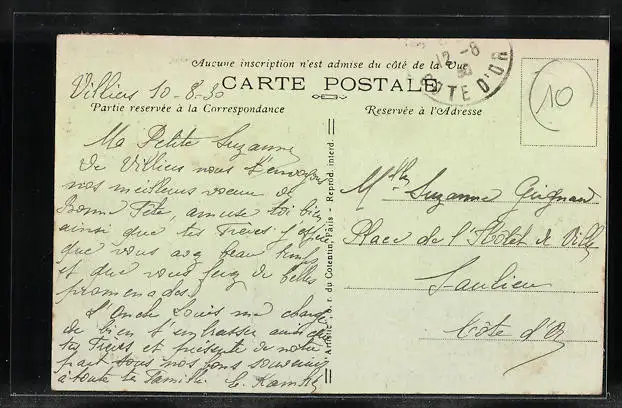 Aucune inscription n'est admise du côté de la Vue
12 -8
30
COTE D'OR
10
Villiers 10-8-30
CARTE POSTALE
Partie reservée à la Correspondance
Reservée à l'Adresse
Ma Petite Suzanne
de Villiers nous t'envoyons
nos meilleurs voeux de
Bonne Fête, amuse toi bien
ainsi que tes Frères j'espère
que vous avez beau temps
et que vous ferez de belles
promenades.
L'Oncle Louis me charge
de bien t'embrasser ainsi que
tes Frères et présente de notre
part tous nos bons souvenirs
à toute ta famille.
Artistic, 8, r. du Cotentin, Paris - Reprod. interd.
Mlle Suzanne
Place de l'Hôtel de Ville
Saulieu
Côte d'Or